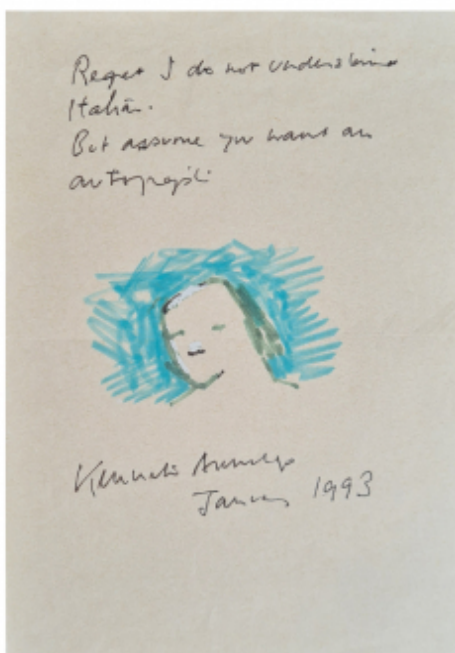 Regret I do not understand
Italian.
But assume you want an
autograph.
Kenneth Armitage
January 1993